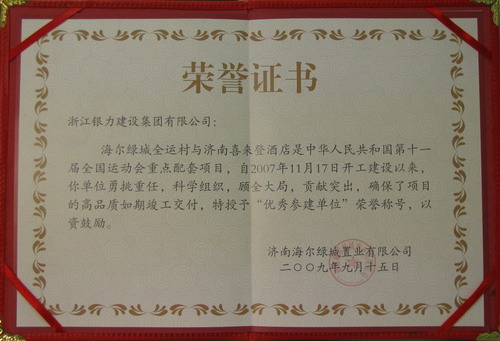 荣誉证书
浙江银力建设集团有限公司：
海尔绿城全运村与济南喜来登酒店是中华人民共和国第十一
届全国运动会重点配套项目，自2007年11月17日开工建设以来，
你单位勇挑重任，科学组织，顾全大局，贡献突出，确保了项目
的高品质如期竣工交付，特授予“优秀参建单位”荣誉称号，以
资鼓励。
济南海尔绿城置业有限公司
二〇〇九年九月十五日